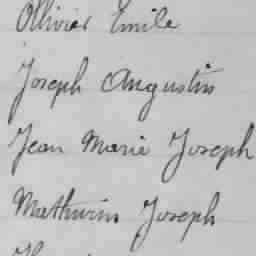 Ollivier Emile
Joseph Augustin
Jean Marie Joseph
Mathurin Joseph